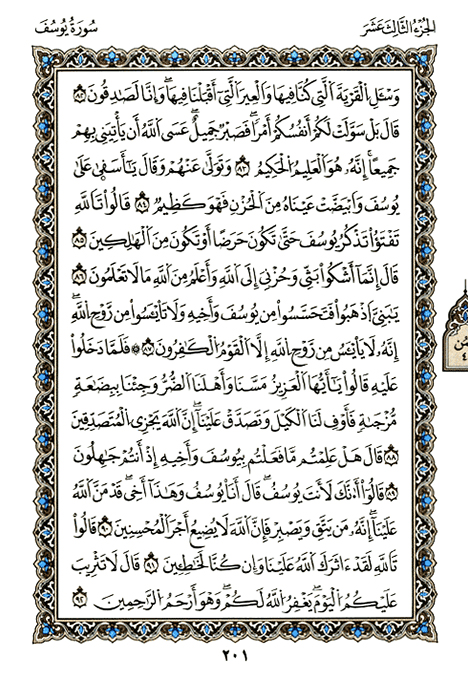 الجزء الثالث عشر
سورة يوسف
وَسْـَٔلِ ٱلْقَرْيَةَ ٱلَّتِى كُنَّا فِيهَا وَٱلْعِيرَ ٱلَّتِىٓ أَقْبَلْنَا فِيهَا وَإِنَّا لَصَٰدِقُونَ ٨٢
قَالَ بَلْ سَوَّلَتْ لَكُمْ أَنفُسُكُمْ أَمْرًا فَصَبْرٌ جَمِيلٌ عَسَى ٱللَّهُ أَن يَأْتِيَنِى بِهِمْ
جَمِيعًا إِنَّهُۥ هُوَ ٱلْعَلِيمُ ٱلْحَكِيمُ ٨٣ وَتَوَلَّىٰ عَنْهُمْ وَقَالَ يَٰٓأَسَفَىٰ عَلَىٰ
يُوسُفَ وَٱبْيَضَّتْ عَيْنَاهُ مِنَ ٱلْحُزْنِ فَهُوَ كَظِيمٌ ٨٤ قَالُوا۟ تَٱللَّهِ
تَفْتَؤُا۟ تَذْكُرُ يُوسُفَ حَتَّىٰ تَكُونَ حَرَضًا أَوْ تَكُونَ مِنَ ٱلْهَٰلِكِينَ ٨٥
قَالَ إِنَّمَآ أَشْكُوا۟ بَثِّى وَحُزْنِىٓ إِلَى ٱللَّهِ وَأَعْلَمُ مِنَ ٱللَّهِ مَا لَا تَعْلَمُونَ ٨٦
يَٰبَنِىَّ ٱذْهَبُوا۟ فَتَحَسَّسُوا۟ مِن يُوسُفَ وَأَخِيهِ وَلَا تَا۟يْـَٔسُوا۟ مِن رَّوْحِ ٱللَّهِ
إِنَّهُۥ لَا يَا۟يْـَٔسُ مِن رَّوْحِ ٱللَّهِ إِلَّا ٱلْقَوْمُ ٱلْكَٰفِرُونَ ٨٧ ۞ فَلَمَّا دَخَلُوا۟
عَلَيْهِ قَالُوا۟ يَٰٓأَيُّهَا ٱلْعَزِيزُ مَسَّنَا وَأَهْلَنَا ٱلضُّرُّ وَجِئْنَا بِبِضَٰعَةٍ
مُّزْجَىٰةٍ فَأَوْفِ لَنَا ٱلْكَيْلَ وَتَصَدَّقْ عَلَيْنَآ إِنَّ ٱللَّهَ يَجْزِى ٱلْمُتَصَدِّقِينَ
٨٨ قَالَ هَلْ عَلِمْتُم مَّا فَعَلْتُم بِيُوسُفَ وَأَخِيهِ إِذْ أَنتُمْ جَٰهِلُونَ
٨٩ قَالُوٓا۟ أَءِنَّكَ لَأَنتَ يُوسُفُ قَالَ أَنَا۠ يُوسُفُ وَهَٰذَآ أَخِى قَدْ مَنَّ ٱللَّهُ
عَلَيْنَآ إِنَّهُۥ مَن يَتَّقِ وَيَصْبِرْ فَإِنَّ ٱللَّهَ لَا يُضِيعُ أَجْرَ ٱلْمُحْسِنِينَ ٩٠ قَالُوا۟
تَٱللَّهِ لَقَدْ ءَاثَرَكَ ٱللَّهُ عَلَيْنَا وَإِن كُنَّا لَخَٰطِـِٔينَ ٩١ قَالَ لَا تَثْرِيبَ
عَلَيْكُمُ ٱلْيَوْمَ يَغْفِرُ ٱللَّهُ لَكُمْ وَهُوَ أَرْحَمُ ٱلرَّٰحِمِينَ ٩٢
٢٠١